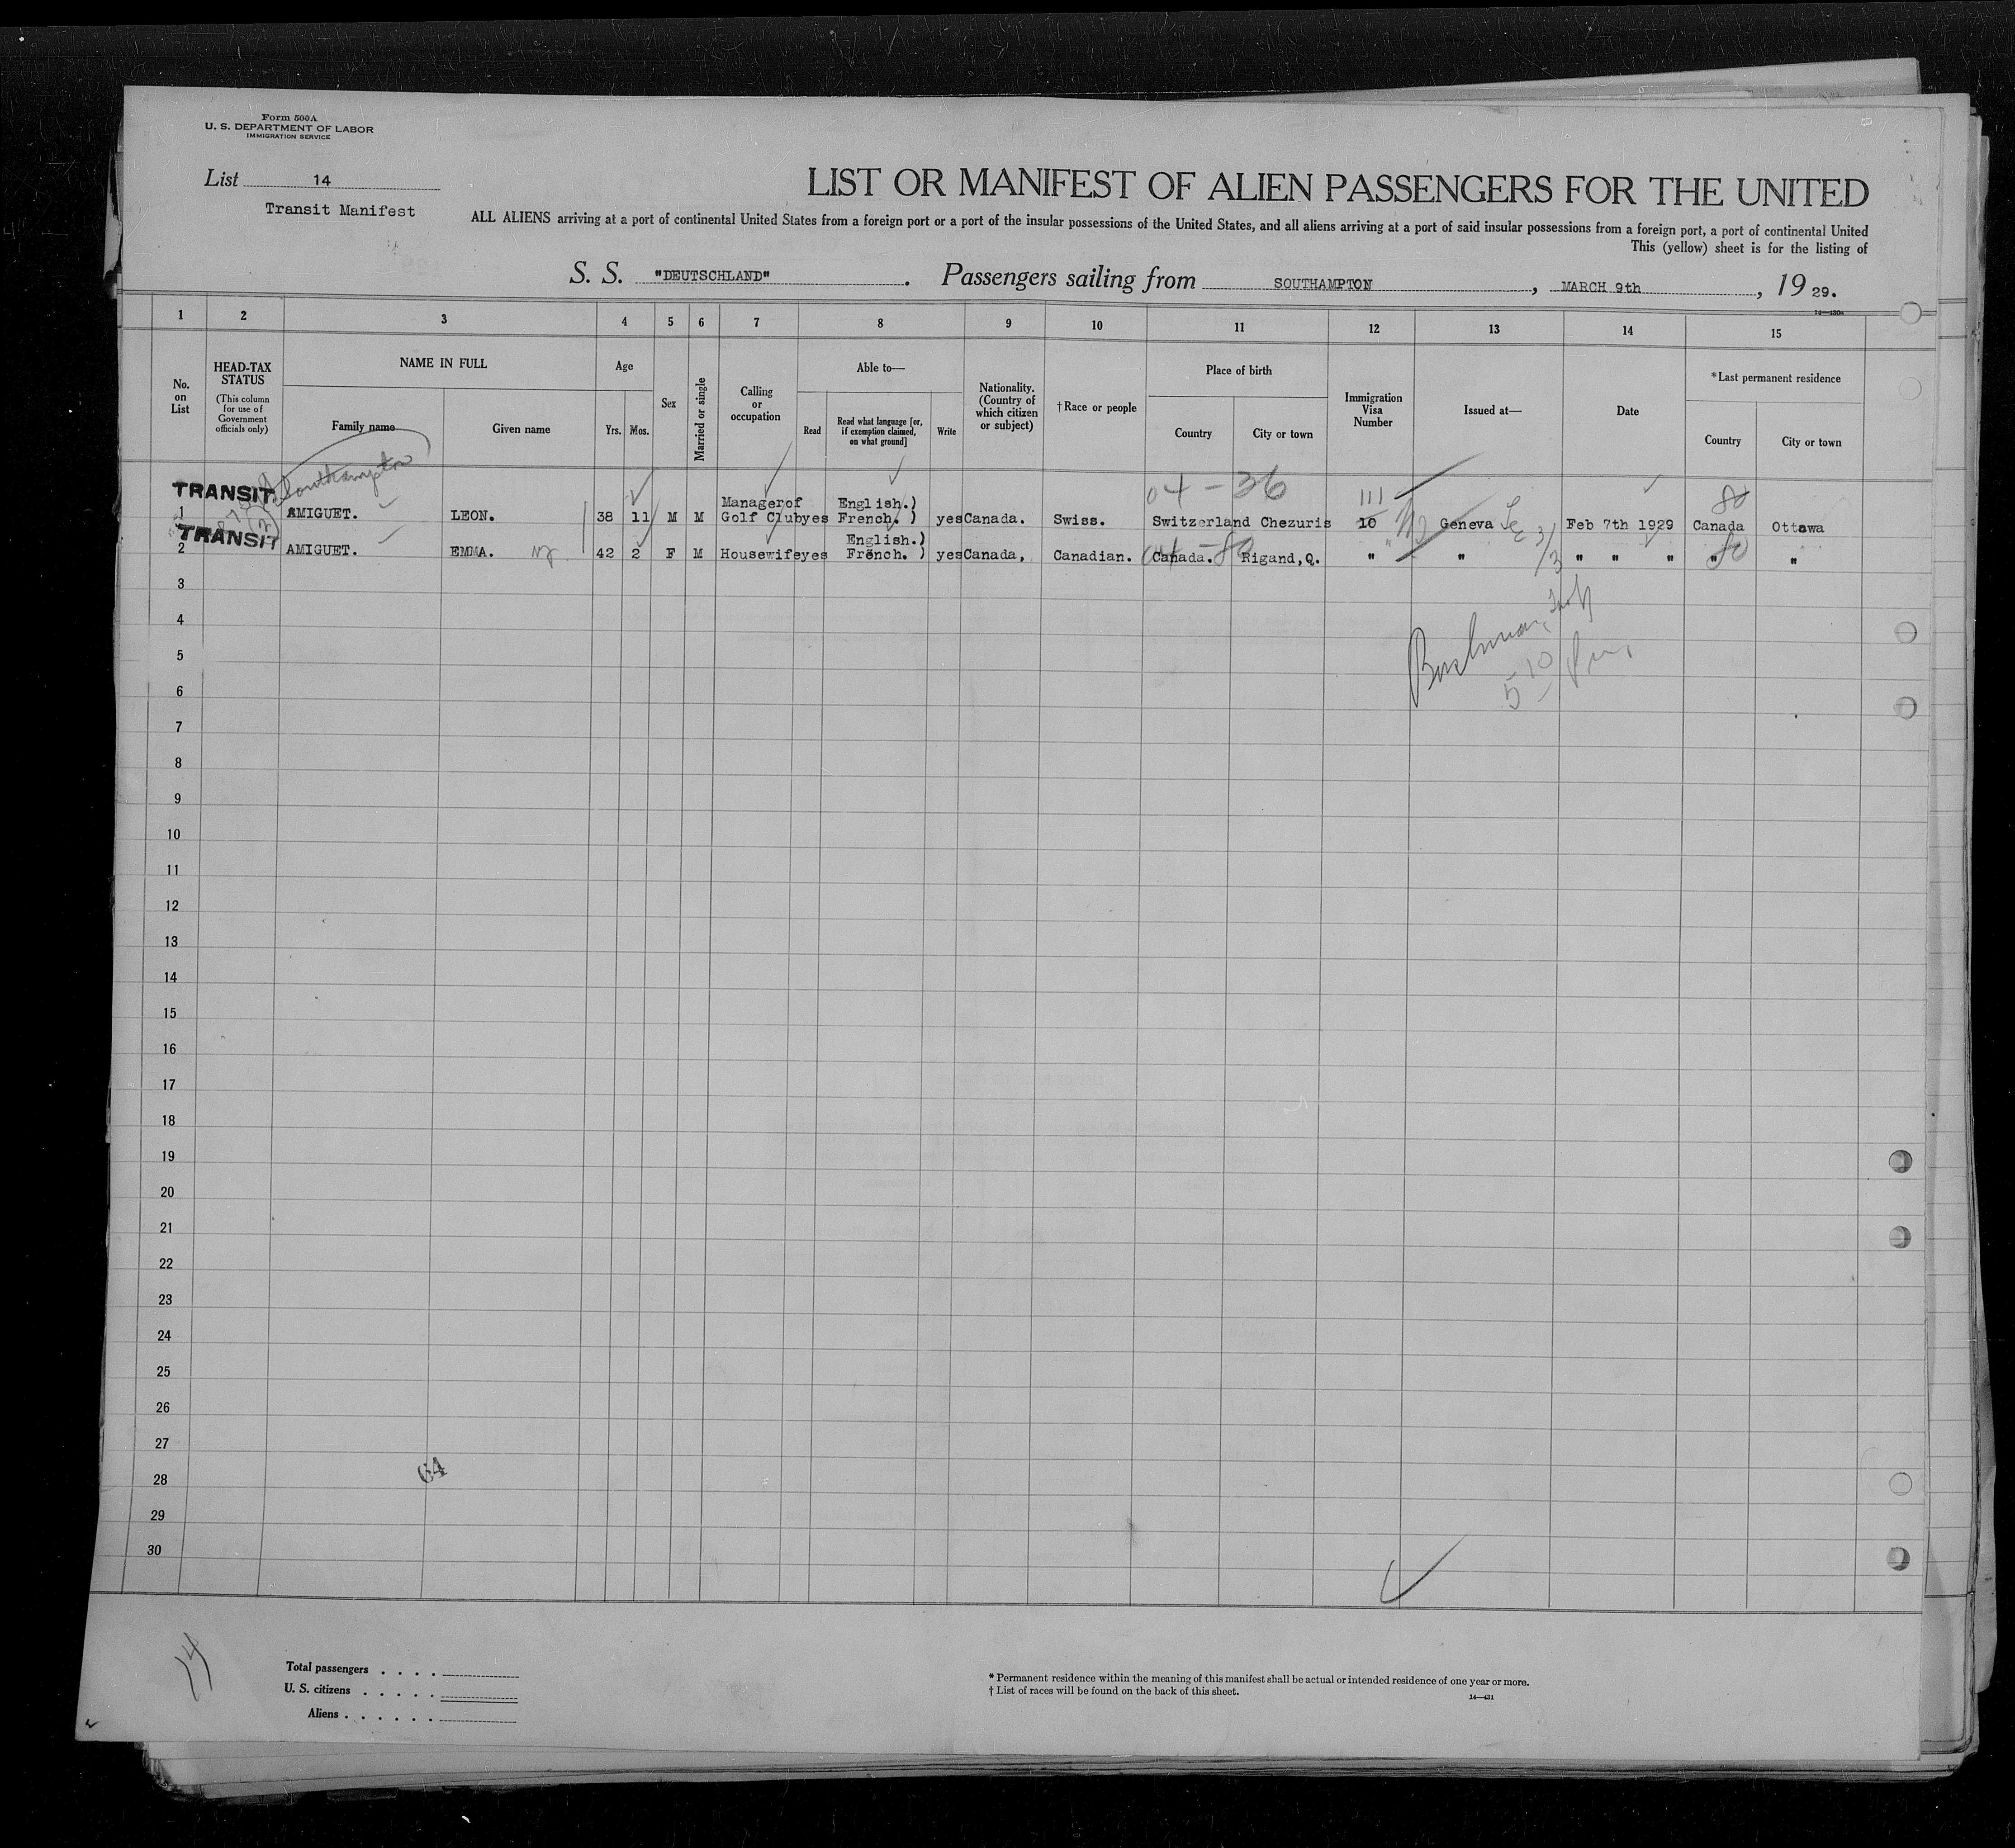 Form 500A
U. S. DEPARTMENT OF LABOR
IMMIGRATION SERVICE
List 14
Transit Manifest
LIST OR MANIFEST OF ALIEN PASSENGERS FOR THE UNITED
ALL ALIENS arriving at a port of continental United States from a foreign port or a port of the insular possessions of the United States, and all aliens arriving at a port of said insular possessions from a foreign port, a port of continental United
This (yellow) sheet is for the listing of
S. S. "DEUTSCHLAND". Passengers sailing from SOUTHAMPTON, MARCH 9th, 1929.
14—430a
1 2 3 4 5 6 7 8 9 10 11 12 13 14 15
No. on List
HEAD-TAX STATUS
(This column for use of Government officials only)
NAME IN FULL
Family name
Given name
Age
Yrs. Mos.
Sex
Married or single
Calling or occupation
Able to—
Read
Read what language [or, if exemption claimed, on what ground]
Write
Nationality. (Country of which citizen or subject)
†Race or people
Place of birth
Country
City or town
Immigration Visa Number
Issued at—
Date
*Last permanent residence
Country
City or town
Southampton
04-36
111
80
TRANSIT
Manager of English.)
1 AMIGUET. LEON. 38 11 M M Golf Club yes French. ) yes Canada. Swiss. Switzerland Chezuris 10 Geneva Feb 7th 1929 Canada Ottawa
TRANSIT
English.)
2 AMIGUET. EMMA. 42 2 F M Housewife yes French. ) yes Canada, Canadian. Canada. Rigand,Q. " " " " " " "
80
3
4
5
6
7
8
9
10
11
12
13
14
15
16
17
18
19
20
21
22
23
24
25
26
27
28
29
30
64
14
Total passengers . . . .
U. S. citizens . . . . .
Aliens . . . . . .
* Permanent residence within the meaning of this manifest shall be actual or intended residence of one year or more.
† List of races will be found on the back of this sheet.
14—431